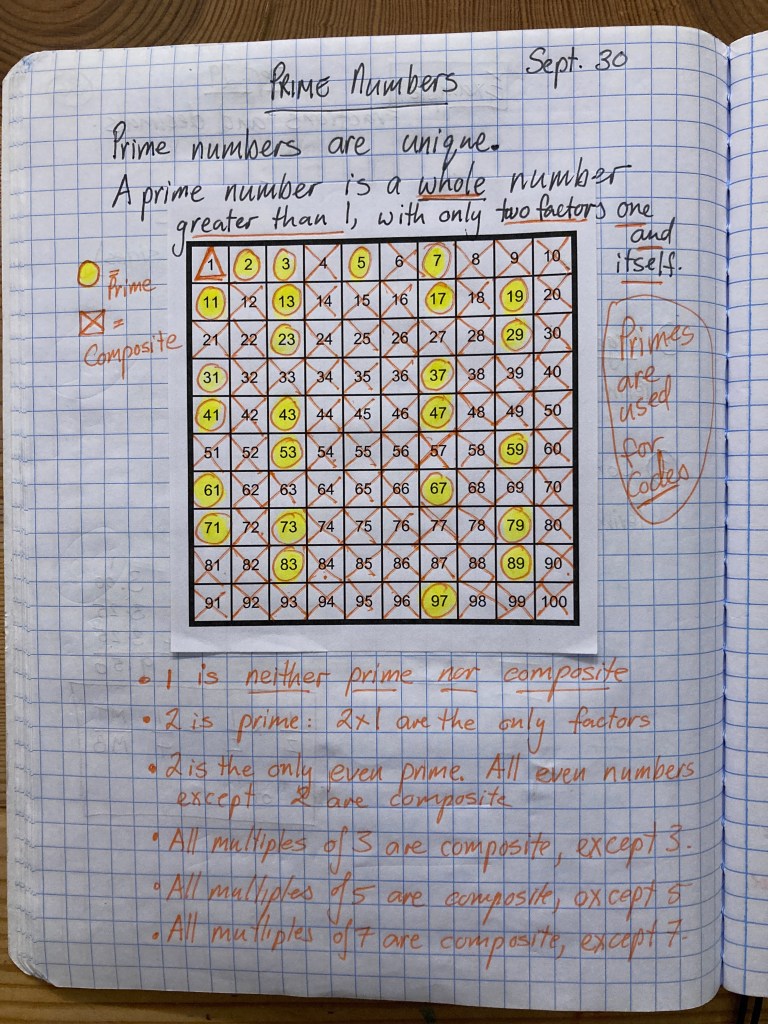 Prime Numbers
Sept. 30
Prime numbers are unique.
A prime number is a whole number
greater than 1, with only two factors one
and
itself.
= Prime
= Composite
1 2 3 4 5 6 7 8 9 10
11 12 13 14 15 16 17 18 19 20
21 22 23 24 25 26 27 28 29 30
31 32 33 34 35 36 37 38 39 40
41 42 43 44 45 46 47 48 49 50
51 52 53 54 55 56 57 58 59 60
61 62 63 64 65 66 67 68 69 70
71 72 73 74 75 76 77 78 79 80
81 82 83 84 85 86 87 88 89 90
91 92 93 94 95 96 97 98 99 100
Primes
are
used
for
Codes
• 1 is neither prime nor composite
• 2 is prime: 2x1 are the only factors
• 2 is the only even prime. All even numbers
except 2 are composite
• All multiples of 3 are composite, except 3.
• All multiples of 5 are composite, except 5
• All multiples of 7 are composite, except 7.